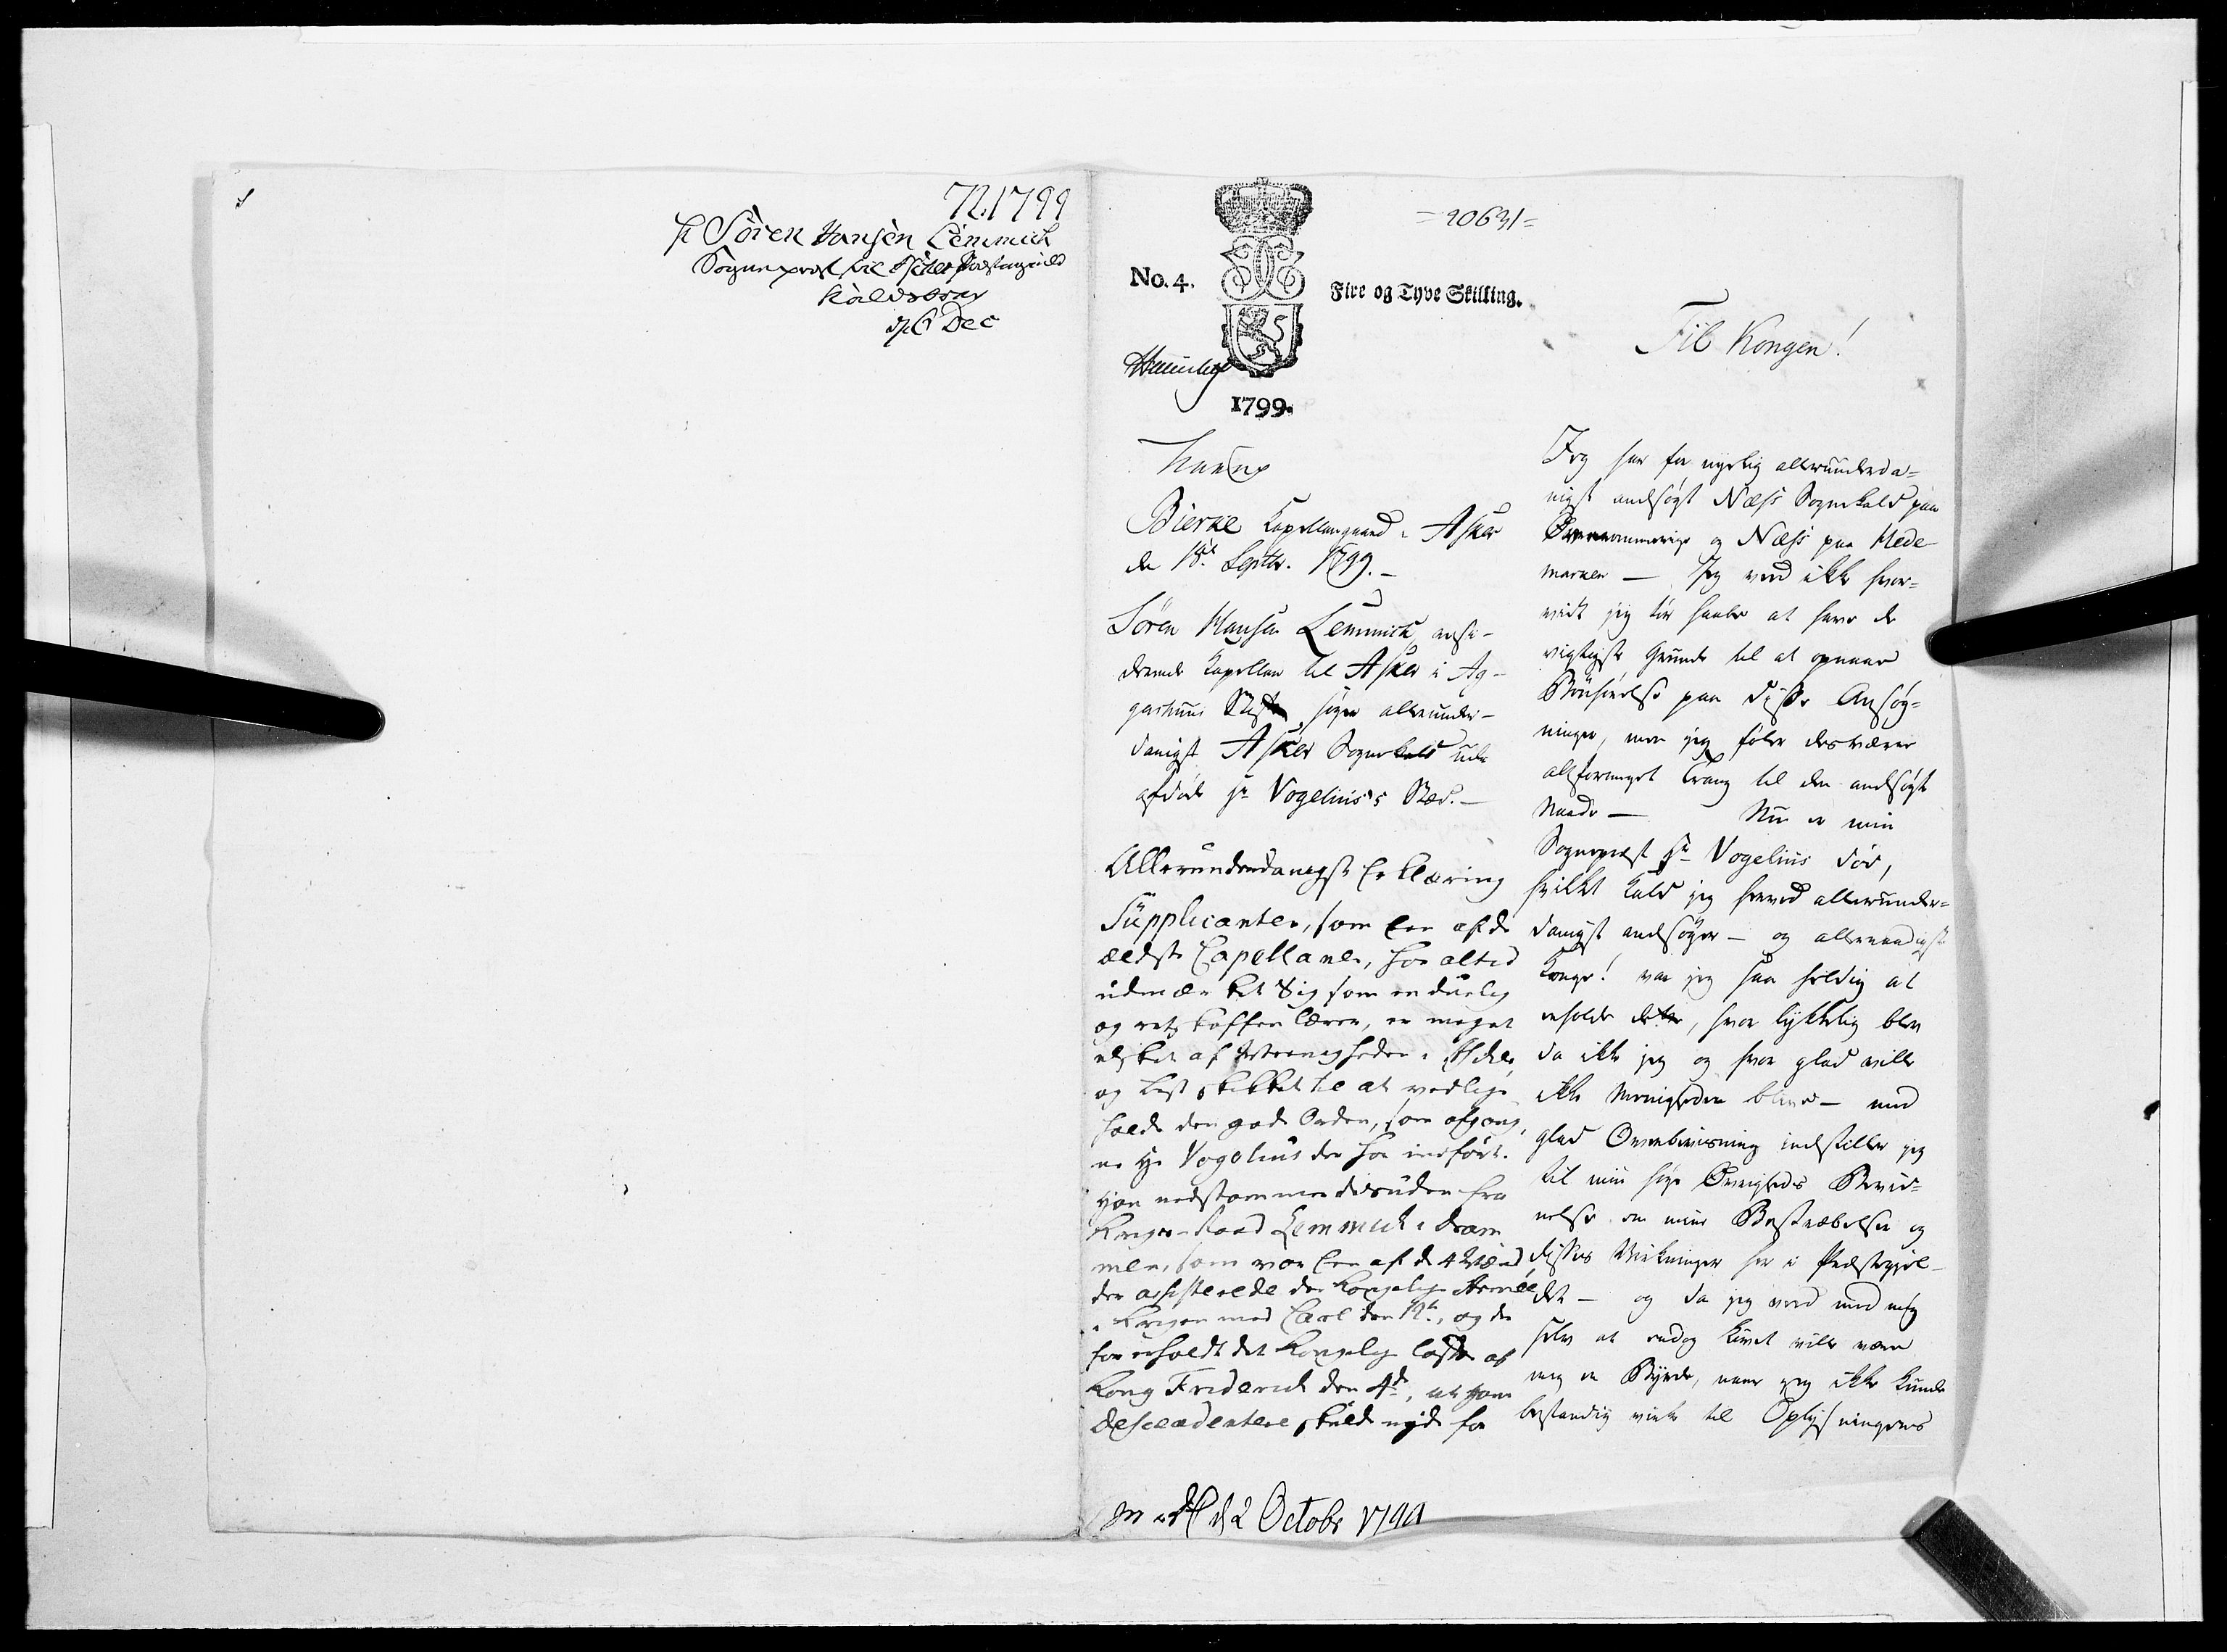 72.1799
Hr Søren Hansen Lemmich
Sognepræst til Asker Præstegield
Kaldsbrev
d. 6 Dec
=20631=
No. 4.
Fire og Tyve Skilling.
1799.
Til Kongen!
Bierke Capellangaard i Asker
den 18de Septbr. 1799.
Søren Hansen Lemmich, resi-
derende Capellan til Asker i Ag-
gershuus Stift, søger allerunder-
danigst Asker Sognekald udi
afdøde Hr Vogelius's Sted.
Allerunderdanigst Erklæring
Supplicanten, som Een af de
ældste Capellaner, har altid
udmærket Sig som en duelig
og retskaffen Lærer, er meget
elsket af Menigheden i Asker
og best skikket til at vedlige
holde den gode Orden, som afgang-
ne Hr Vogelius der har indført.
Han nedstammer desuden fra
Krigs-Raad Lemmich i Dram
men, som var Een af de 4 Mænd,
der assisterede den Kongelige Armée
i Krigen med Carl den 12te, og der
for erholdt det Kongelige Løfte af
Kong Friderich den 4de, at hans
Descendentere skulde nyde for
Jeg har for nyelig allerunderda-
nigst ansøgt Næss Sognekald paa
Øvre Rommerige og Næss paa Hede-
marken — Jeg veed ikke hvor-
vidt jeg tør haabe at have de
vigtigste Grunde til at opnaae
Bønhørelse paa disse Ansøg-
ninger, men jeg føler desværre
altformeget Trang til den ansøgte
Naade — Nu er min
Sognepræst Hr Vogelius død,
hvilket Kald jeg herved allerunder-
danigst ansøger — og allernaadigste
Konge! var jeg saa heldig at
erholde dette, hvor lykkelig blev
da ikke jeg og hvor glad ville
ikke Menigheden blive — med
glad Overbeviisning indstiller jeg
til min høye Øvrigheds Bevid-
nelse om mine Bestræbelser og
disses Virkninger her i Præstegiel-
det — og da jeg veed med mig
selv at endog Livet ville være
mig en Byrde, naar jeg ikke kunde
bestandig virke til Oplysningens
d 2 Octobr 1799